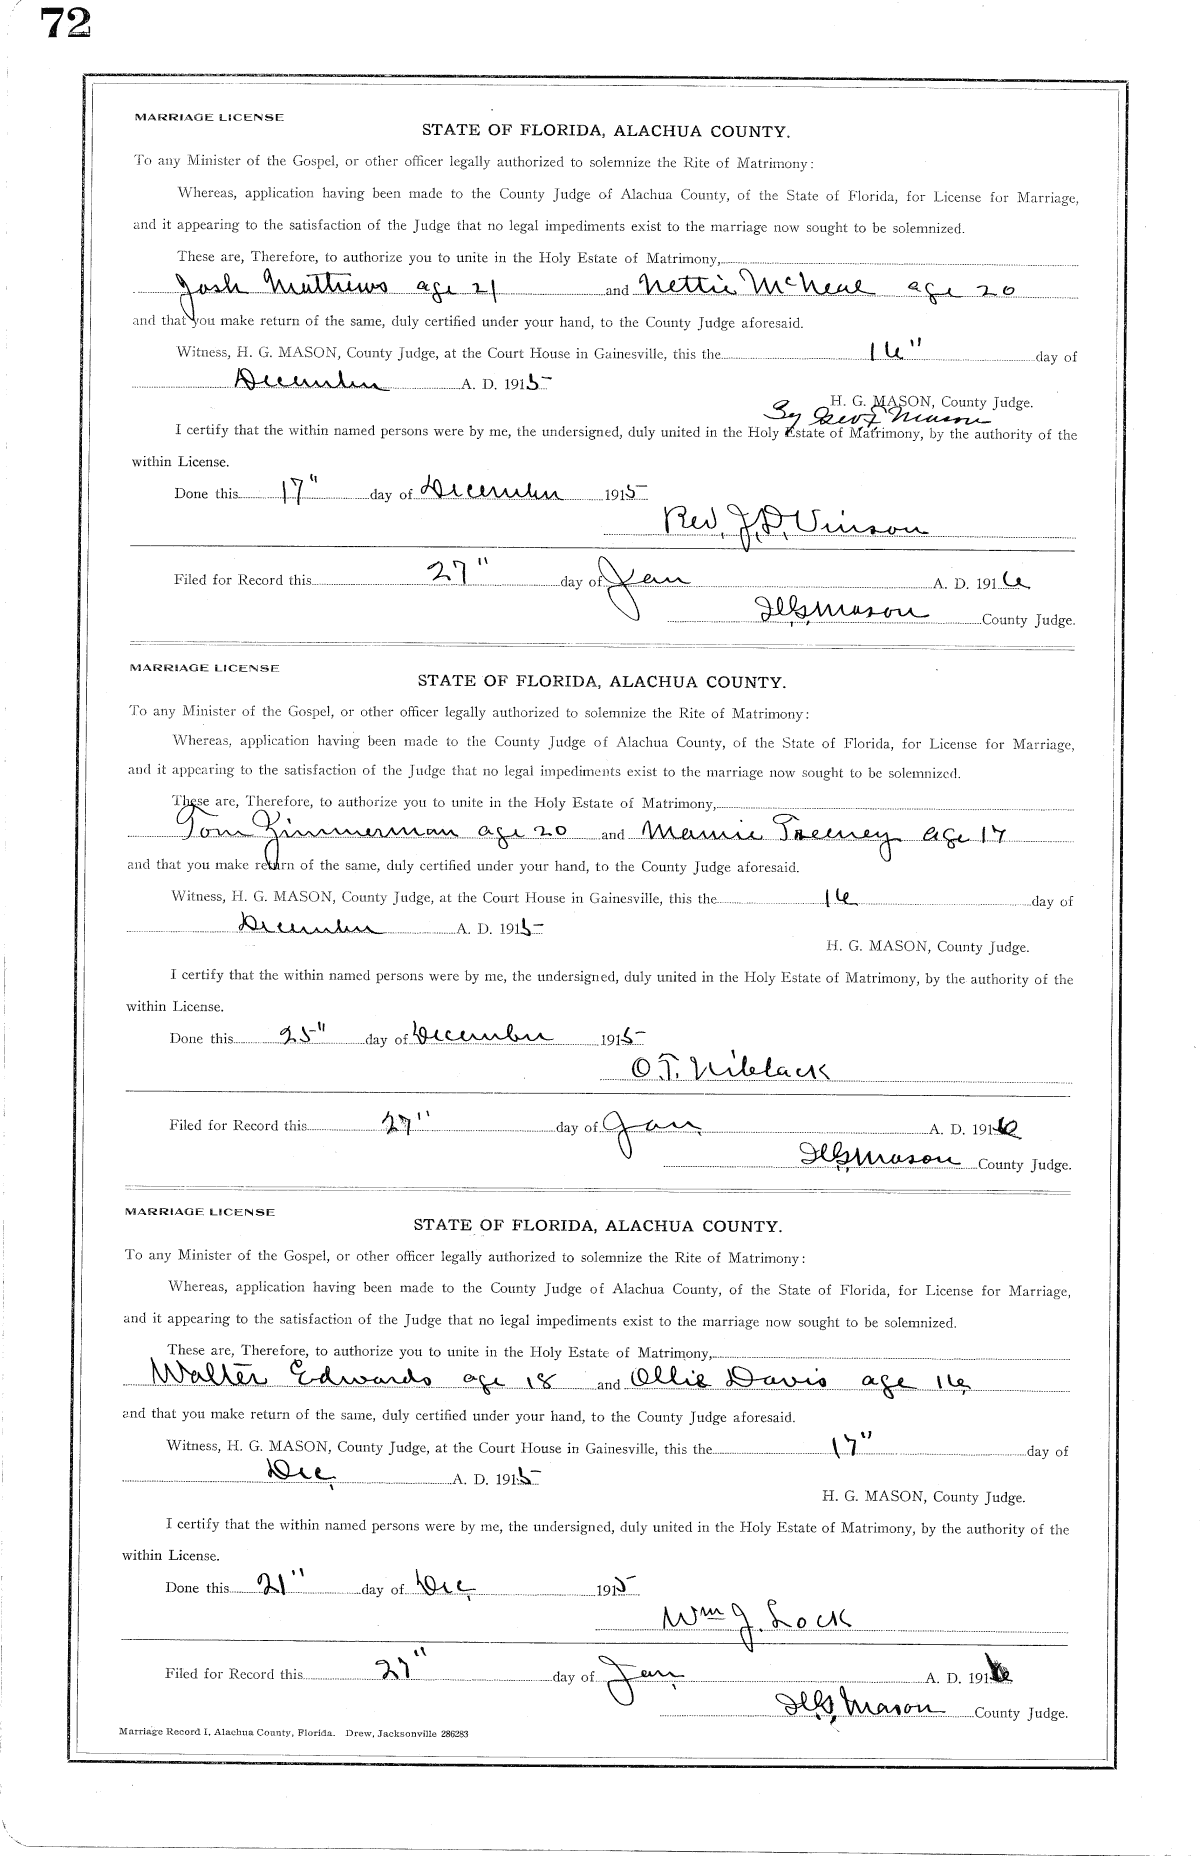 72
MARRIAGE LICENSE
STATE OF FLORIDA, ALACHUA COUNTY.
To any Minister of the Gospel, or other officer legally authorized to solemnize the Rite of Matrimony:
Whereas, application having been made to the County Judge of Alachua County, of the State of Florida, for License for Marriage,
and it appearing to the satisfaction of the Judge that no legal impediments exist to the marriage now sought to be solemnized.
These are, Therefore, to authorize you to unite in the Holy Estate of Matrimony,
Josh Matthews age 21 and Nettie McNeal age 20
and that you make return of the same, duly certified under your hand, to the County Judge aforesaid.
Witness, H. G. MASON, County Judge, at the Court House in Gainesville, this the 16" day of
December A. D. 1915
H. G. MASON, County Judge.
By Geo F Mason
I certify that the within named persons were by me, the undersigned, duly united in the Holy Estate of Matrimony, by the authority of the
within License.
Done this 17" day of December 1915
Rev. J. D. Vinson
Filed for Record this 27" day of Jan A. D. 1916
H. G. Mason County Judge.
MARRIAGE LICENSE
STATE OF FLORIDA, ALACHUA COUNTY.
To any Minister of the Gospel, or other officer legally authorized to solemnize the Rite of Matrimony:
Whereas, application having been made to the County Judge of Alachua County, of the State of Florida, for License for Marriage,
and it appearing to the satisfaction of the Judge that no legal impediments exist to the marriage now sought to be solemnized.
These are, Therefore, to authorize you to unite in the Holy Estate of Matrimony,
Tom Zimmerman age 20 and Mamie age 17
and that you make return of the same, duly certified under your hand, to the County Judge aforesaid.
Witness, H. G. MASON, County Judge, at the Court House in Gainesville, this the 16 day of
December A. D. 1915
H. G. MASON, County Judge.
I certify that the within named persons were by me, the undersigned, duly united in the Holy Estate of Matrimony, by the authority of the
within License.
Done this 25" day of December 1915
O. T. Niblack
Filed for Record this 27" day of Jan. A. D. 1916
H. G. Mason County Judge.
MARRIAGE LICENSE
STATE OF FLORIDA, ALACHUA COUNTY.
To any Minister of the Gospel, or other officer legally authorized to solemnize the Rite of Matrimony:
Whereas, application having been made to the County Judge of Alachua County, of the State of Florida, for License for Marriage,
and it appearing to the satisfaction of the Judge that no legal impediments exist to the marriage now sought to be solemnized.
These are, Therefore, to authorize you to unite in the Holy Estate of Matrimony,
Walter Edwards age 18 and Ollie Davis age 16
and that you make return of the same, duly certified under your hand, to the County Judge aforesaid.
Witness, H. G. MASON, County Judge, at the Court House in Gainesville, this the 17" day of
Dec, A. D. 1915
H. G. MASON, County Judge.
I certify that the within named persons were by me, the undersigned, duly united in the Holy Estate of Matrimony, by the authority of the
within License.
Done this 21" day of Dec, 1915
Wm J. Lock
Filed for Record this 27" day of Jan, A. D. 1916
H. G. Mason County Judge.
Marriage Record I, Alachua County, Florida. Drew, Jacksonville 286283